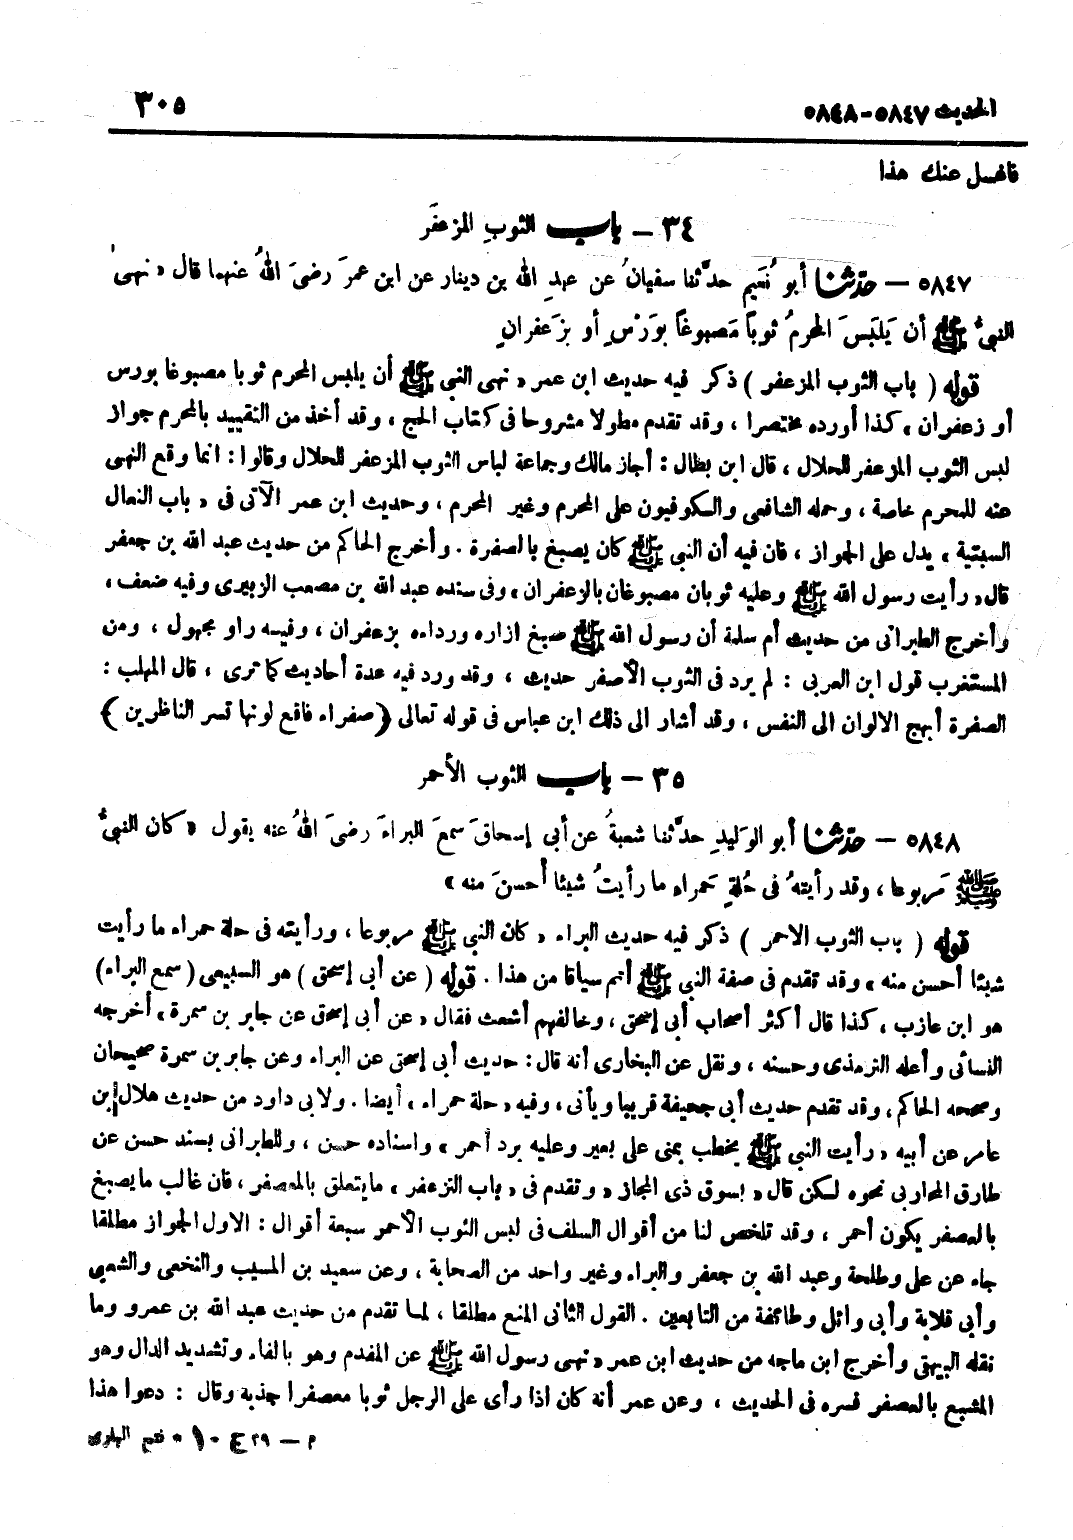 الحديث ٥٨٤٧-٥٨٤٨ ٣٠٥
فاغسل عنك هذا
٣٤ – باب الثوبِ المزعفَر
٥٨٤٧ – حدّثنا أبو نُعَيم حدَّثنا سفيانُ عن عبدِ الله بن دينار عن ابن عمرَ رضىَ اللهُ عنهما قال « نهى
النبىُّ ﷺ أن يَلبَسَ المحرمُ ثوباً مَصبوغاً بوَرْسٍ أو بزَعفرانٍ
قوله ( باب الثوب المزعفر ) ذكر فيه حديث ابن عمر « نهى النبى ﷺ أن يلبس المحرم ثوبا مصبوغا بورس
أو زعفران ، كذا أورده مختصرا ، وقد تقدم مطولا مشروحا فى كتاب الحج ، وقد أخذ من التقييد بالمحرم جواز
لبس الثوب المزعفر للحلال ، قال ابن بطال : أجاز مالك وجماعة لباس الثوب المزعفر للحلال وقالوا : انما وقع النهى
عنه للمحرم خاصة ، وحمله الشافعى والكوفيون على المحرم وغير المحرم ، وحديث ابن عمر الآتى فى « باب النعال
السبتية ، يدل على الجواز ، فان فيه أن النبى ﷺ كان يصبغ بالصفرة . وأخرج الحاكم من حديث عبد الله بن جعفر
قال « رأيت رسول الله ﷺ وعليه ثوبان مصبوغان بالزعفران ، وفى سنده عبد الله بن مصعب الزبيرى وفيه ضعف ،
وأخرج الطبرانى من حديث أم سلمة أن رسول الله ﷺ صبغ ازاره ورداءه بزعفران ، وفيه راو مجهول ، ومن
المستغرب قول ابن العربى : لم يرد فى الثوب الأصفر حديث ، وقد ورد فيه عدة أحاديث كما ترى ، قال المهلب :
الصفرة أبهج الالوان الى النفس ، وقد أشار الى ذلك ابن عباس فى قوله تعالى ﴿ صفراء فاقع لونها تسر الناظرين ﴾
٣٥ – باب الثوب الأحمر
٥٨٤٨ – حدّثنا أبو الوَليدِ حدَّثنا شعبةُ عن أبى إسحاقَ سمعَ البراءَ رضىَ اللهُ عنه يقول « كان النبىُّ
ﷺ مَربوعا ، وقد رأيتهُ فى حُلةٍ حَمراء ما رأيتُ شيئا أحسنَ منه »
قوله ( باب الثوب الاحمر ) ذكر فيه حديث البراء « كان النبى ﷺ مربوعا ، ورأيته فى حلة حمراء ما رأيت
شيئا أحسن منه » وقد تقدم فى صفة النبى ﷺ أتم سياقا من هذا . قوله ( عن أبى إسحق ) هو السبيعى ( سمع البراء )
هو ابن عازب ، كذا قال أكثر أصحاب أبى إسحق ، وخالفهم أشعث فقال « عن أبى إسحق عن جابر بن سمرة » أخرجه
النسائى وأعله الترمذى وحسنه ، ونقل عن البخارى أنه قال : حديث أبى إسحق عن البراء وعن جابر بن سمرة صحيحان
وصححه الحاكم ، وقد تقدم حديث أبى جحيفة قريبا ويأتى ، وفيه « حلة حمراء ، أيضا . ولابى داود من حديث هلال ابن
عامر عن أبيه « رأيت النبى ﷺ يخطب بمنى على بعير وعليه برد أحمر » واسناده حسن ، وللطبرانى بسند حسن عن
طارق المحاربى نحوه لكن قال « بسوق ذى المجاز » وتقدم فى « باب التزعفر » ما يتعلق بالمعصفر ، فان غالب ما يصبغ
بالعصفر يكون أحمر ، وقد تلخص لنا من أقوال السلف فى لبس الثوب الأحمر سبعة أقوال : الاول الجواز مطلقا
جاء عن على وطلحة وعبد الله بن جعفر والبراء وغير واحد من الصحابة ، وعن سعيد بن المسيب والنخعى والشعبى
وأبى قلابة وأبى وائل وطائفة من التابعين . القول الثانى المنع مطلقا ، لما تقدم من حديث عبد الله بن عمرو وما
نقله البيهقى وأخرج ابن ماجه من حديث ابن عمر « نهى رسول الله ﷺ عن المفدم وهو بالفاء وتشديد الدال وهو
المشبع بالعصفر فسره فى الحديث ، وعن عمر أنه كان اذا رأى على الرجل ثوبا معصفرا جذبه وقال : دعوا هذا
م – ٣٩ ج ١٠ * فتح البارى